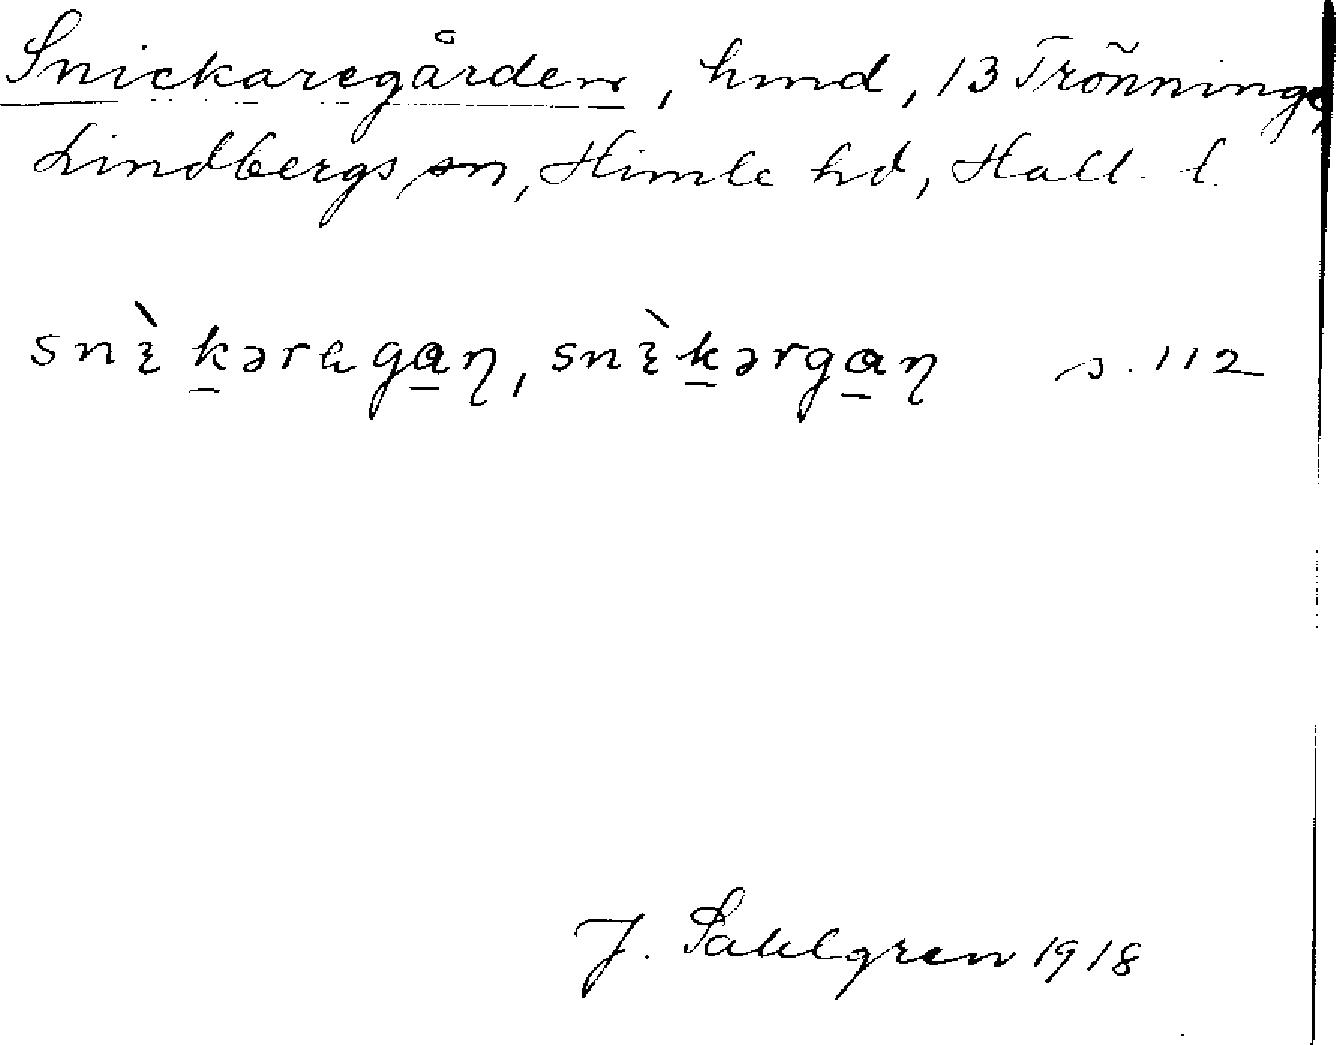 Snickaregården, hmd, 13 Trönninge,
Lindbergs sn, Himle hd, Hall. l.
snὶ̀k̠əraga̠ŋ, snὶ̀k̠ərga̠ŋ s. 112
J. Sahlgren 1918